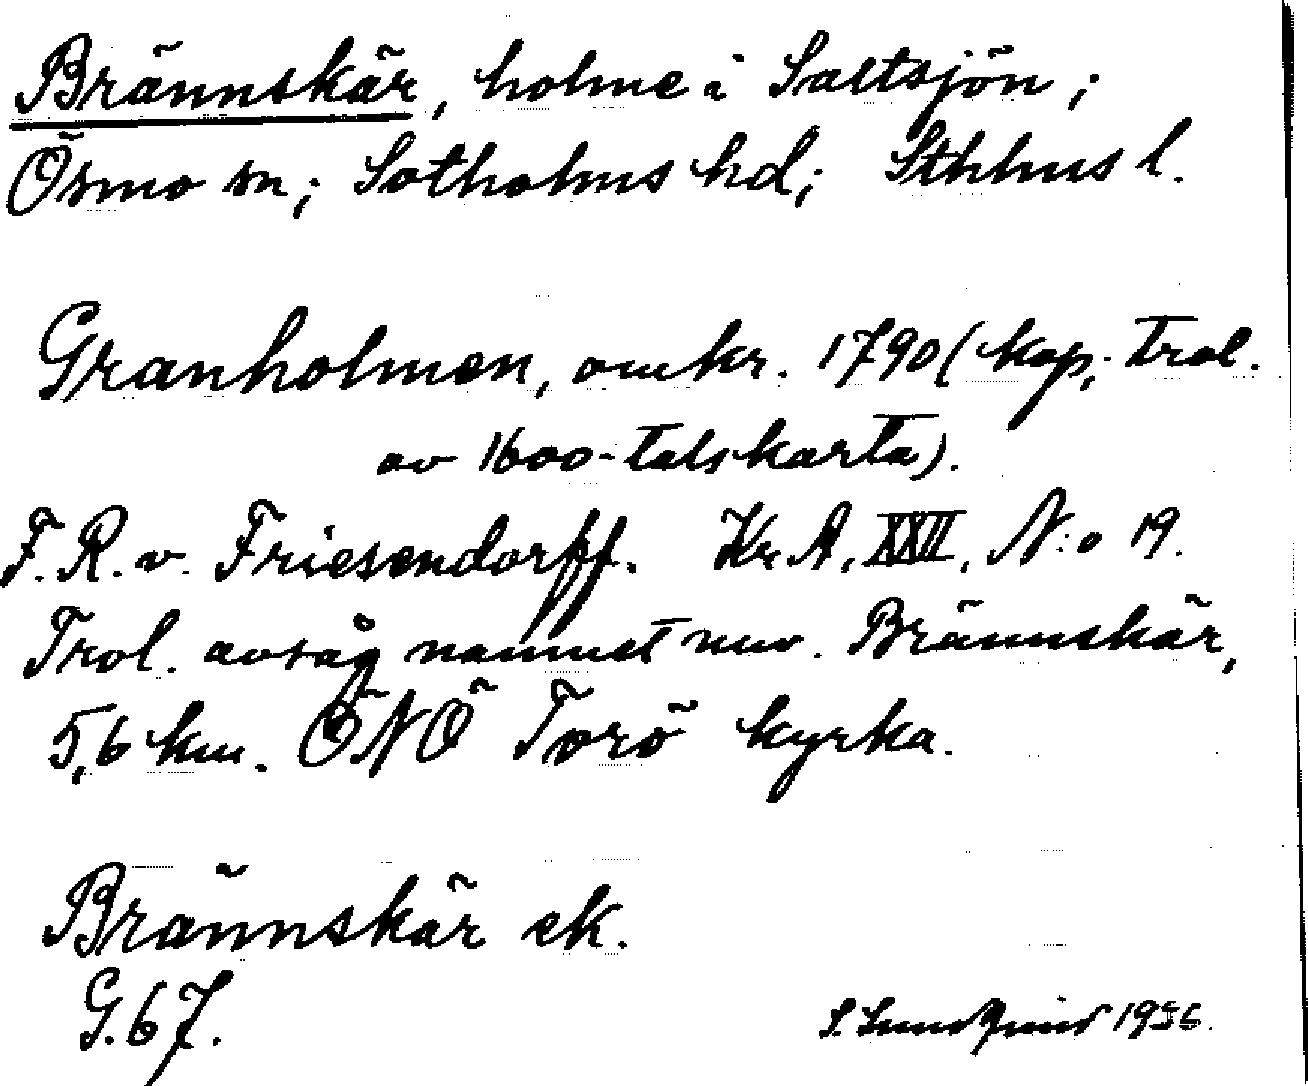 Brännskär, holme i Saltsjön;
Ösmo sn; Sotholms hd; Sthlms l.
Granholmen, omkr. 1790 (kop, trol.
av 1600-talskarta).
F. R. v. Friesendorff. Kr. A. XXII, N:o 19.
Trol. avsåg namnet nuv. Brännskär,
5,6 km. ÖNÖ Torö kyrka.
Brännskär ek.
G. 67.
S. Lundqvist 1936.